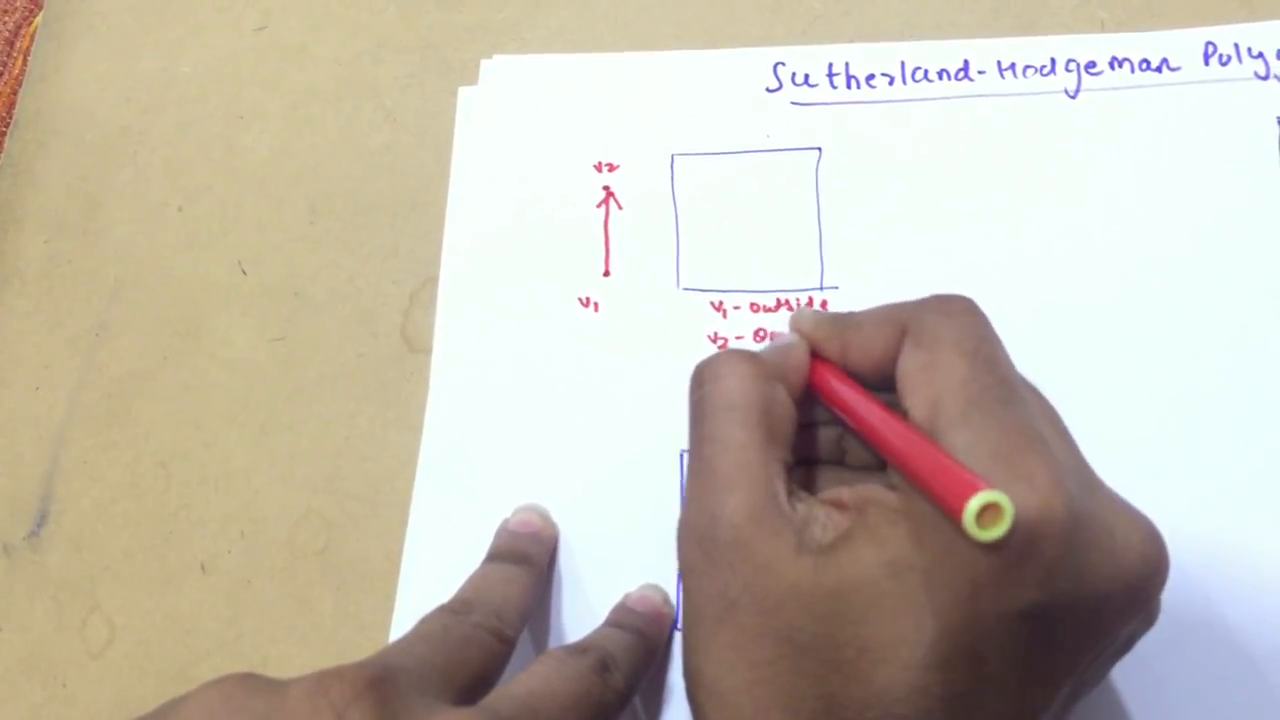 Sutherland-Hodgeman
V2
V1
V1 - outside
V2 -